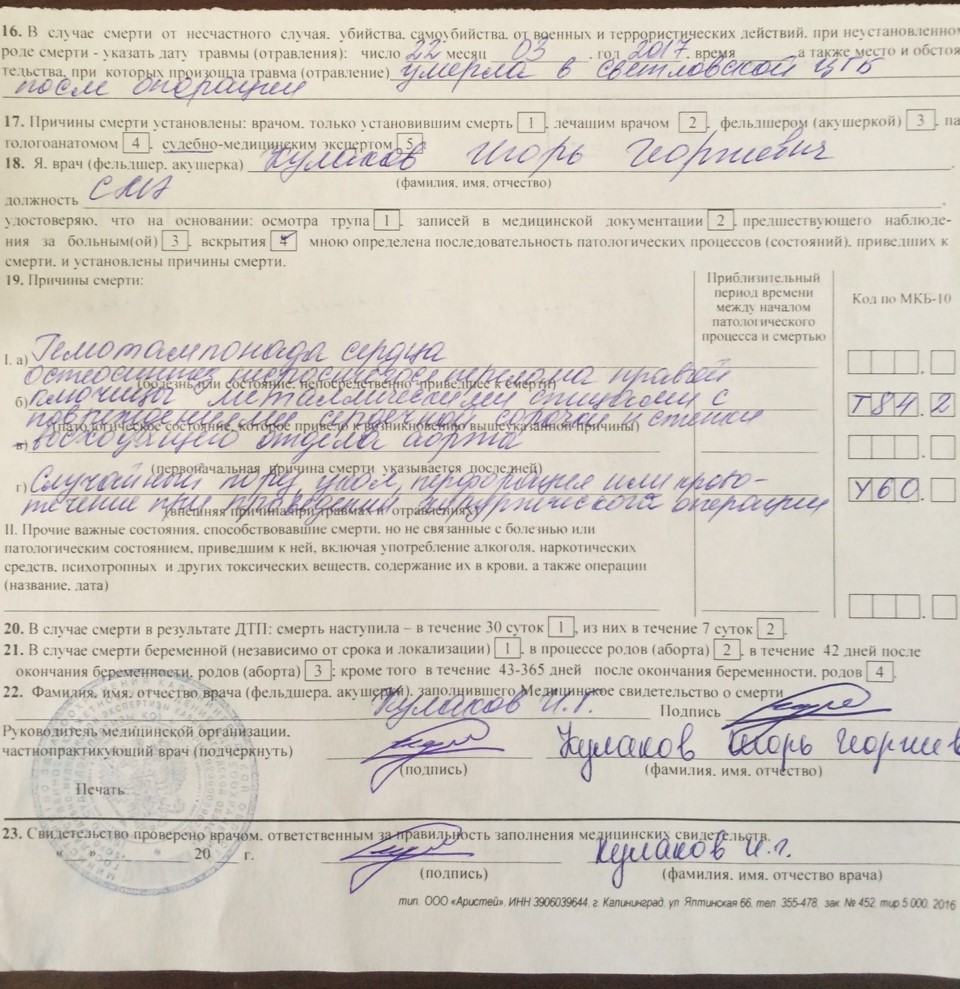 16. В случае смерти от несчастного случая, убийства, самоубийства, от военных и террористических действий, при неустановленном
роде смерти - указать дату травмы (отравления): число 22 месяц 03 год 2017, время ____ , а также место и обстоя
тельства, при которых произошла травма (отравление) умерла в Светловской ЦГБ
после операции
17. Причины смерти установлены: врачом, только установившим смерть 1, лечащим врачом 2, фельдшером (акушеркой) 3, па
тологоанатомом 4, судебно-медицинским экспертом 5.
18. Я, врач (фельдшер, акушерка) Кулаков Игорь Георгиевич
(фамилия, имя, отчество)
должность СМЭ
удостоверяю, что на основании: осмотра трупа 1, записей в медицинской документации 2, предшествующего наблюде-
ния за больным(ой) 3, вскрытия 4 мною определена последовательность патологических процессов (состояний), приведших к
смерти, и установлены причины смерти.
19. Причины смерти:
Приблизительный
период времени
между началом
патологического
процесса и смертью
Код по МКБ-10
I. а) Гемотампонада сердца
остеосинтез перелома правой
(болезнь или состояние, непосредственно приведшее к смерти)
б) ключицы металлическими спицами с T84.2
повреждением сердечной сорочки и стенки
(патологическое состояние, которое привело к возникновению вышеуказанной причины)
в) восходящего отдела аорты
(первоначальная причина смерти указывается последней)
г) Случайный порез, укол, перфорация или крово- Y60.
течение при проведении хирургической операции
(внешняя причина при травмах и отравлениях)
II. Прочие важные состояния, способствовавшие смерти, но не связанные с болезнью или
патологическим состоянием, приведшим к ней, включая употребление алкоголя, наркотических
средств, психотропных и других токсических веществ, содержание их в крови, а также операции
(название, дата)
20. В случае смерти в результате ДТП: смерть наступила – в течение 30 суток 1, из них в течение 7 суток 2.
21. В случае смерти беременной (независимо от срока и локализации) 1, в процессе родов (аборта) 2, в течение 42 дней после
окончания беременности, родов (аборта) 3; кроме того в течение 43-365 дней после окончания беременности, родов 4.
22. Фамилия, имя, отчество врача (фельдшера, акушерки), заполнившего Медицинское свидетельство о смерти
Кулаков И.Г. Подпись
Руководитель медицинской организации,
частнопрактикующий врач (подчеркнуть) Кулаков Игорь Георгиев
(подпись) (фамилия, имя, отчество)
Печать
23. Свидетельство проверено врачом, ответственным за правильность заполнения медицинских свидетельств.
« » 20 г. Кулаков И.Г.
(подпись) (фамилия, имя, отчество врача)
тип. ООО «Аристей», ИНН 3906039644, г. Калининград, ул. Ялтинская 66, тел. 355-478, зак. № 452, тир 5 000, 2016